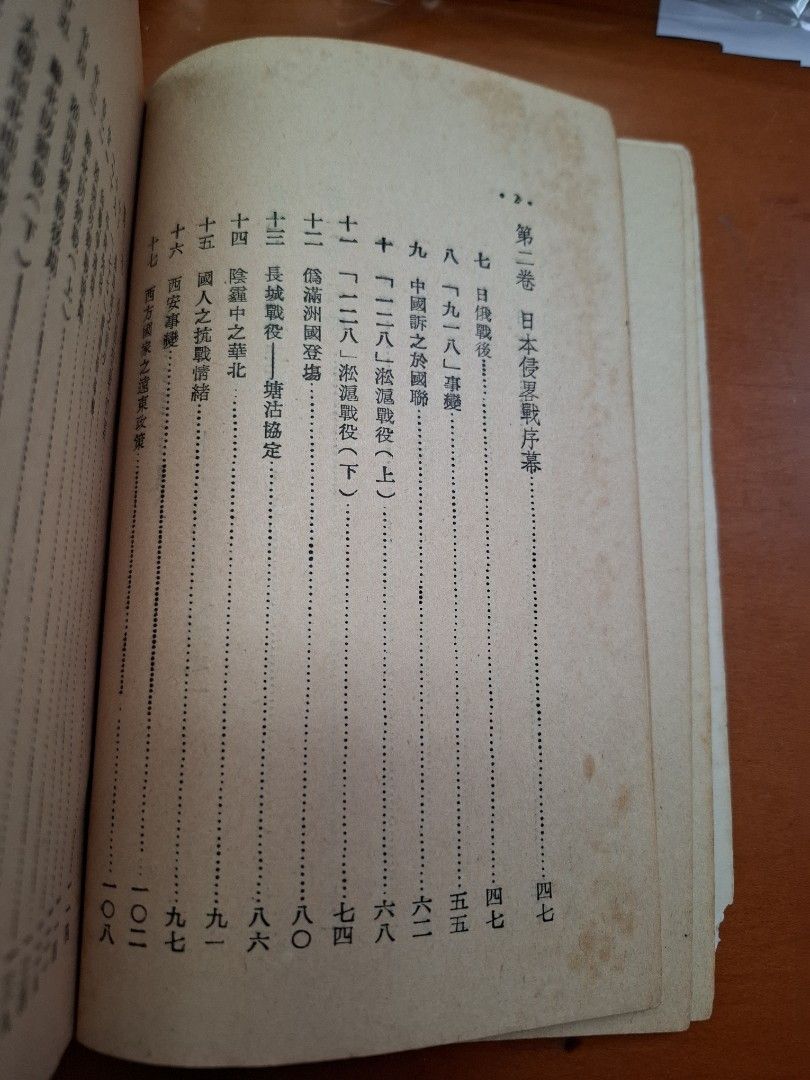 • 2 •
第二卷 日本侵畧戰序幕……四七
七 日俄戰後……四七
八 「九一八」事變……五五
九 中國訴之於國聯……六二
十 「一二八」淞滬戰役(上)……六八
十一 「一二八」淞滬戰役(下)……七四
十二 僞滿洲國登塲……八〇
十三 長城戰役——塘沽協定……八六
十四 陰霾中之華北……九一
十五 國人之抗戰情緒……九七
十六 西安事變……一〇二
十七 西方國家之遠東政策……一〇八